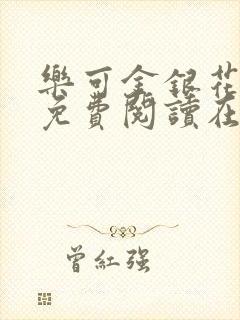 樂可金銀花
免費閱讀在
曾紅强